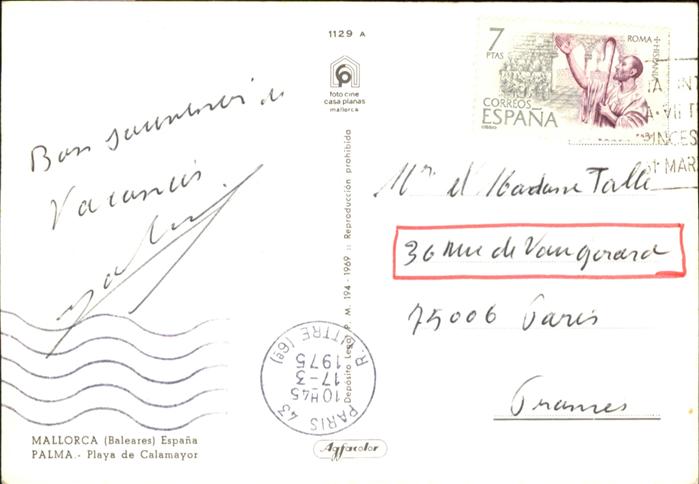 1129 A
foto cine
casa planas
mallorca
7
PTAS
ROMA + HISPANIA
CORREOS
ESPAÑA
Bon souvenir de
Vacances
Mr et Madame Talle
36 Rue de Vaugirard
75006 Paris
France
Depósito Legal P. M. 194 - 1969 :: Reproducción prohibida
PARIS 43
10H45
17-3
1975
R. LITTRE (6e)
MALLORCA (Baleares) España
PALMA.- Playa de Calamayor
Agfacolor